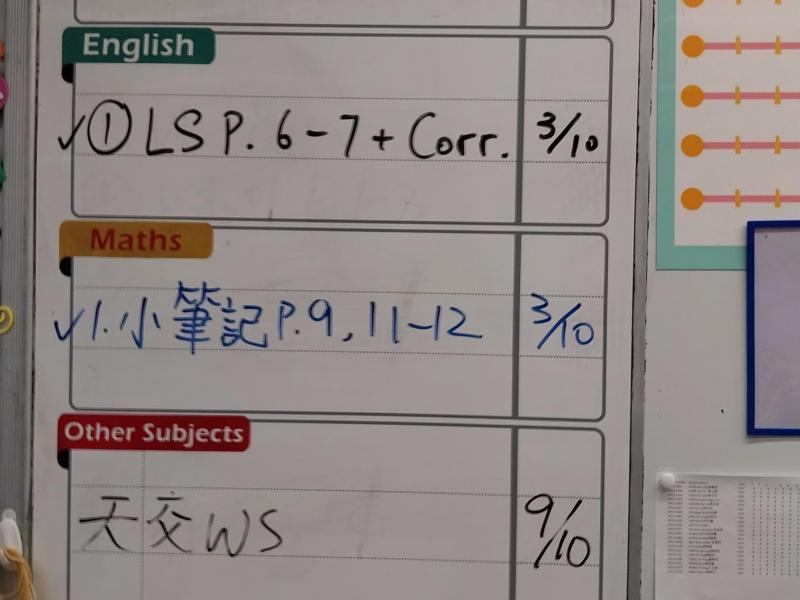 English
✓① LS P. 6-7 + Corr. 3/10
Maths
✓1. 小筆記 P.9, 11-12 3/10
Other Subjects
天交WS 9/10